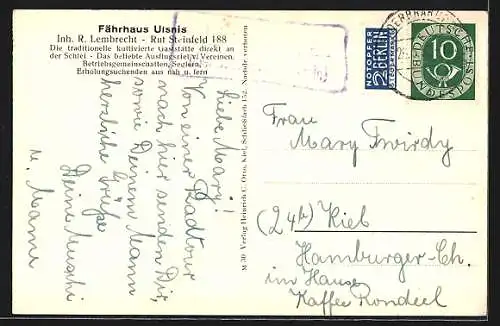 Fährhaus Ulsnis
Inh. R. Lembrecht - Ruf Steinfeld 188
Die traditionelle kultivierte Gaststätte direkt an
der Schlei - Das beliebte Ausflugsziel v. Vereinen,
Betriebsgemeinschaften, Seglern,
Erholungsuchenden aus nah u. fern
Liebe Mary!
Von einer Radtour
nach hier senden Dir,
sowie Deinem Mann
herzliche Grüße
Deine
u. Mama
M 30 Verlag Heinrich C. Otto, Kiel, Schloßstraße 152. Nachdr. verboten
NOTOPFER
2 BERLIN
STEUERMARKE
10
DEUTSCHE POST
BUNDESPOST
Frau
Mary
(24b) Kiel
Hamburger-Ch.
im Hause
Kaffee Rondeel